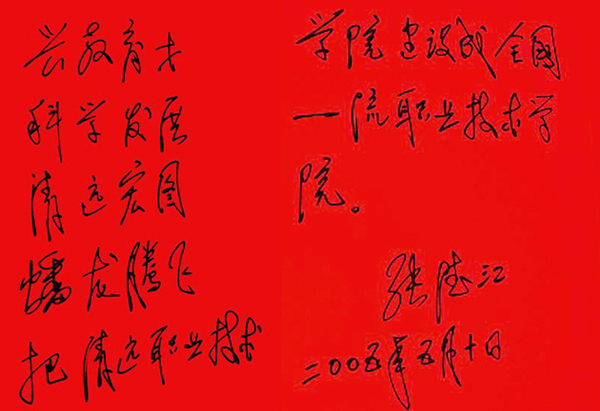 兴教育才
科学发展
清远宏图
蟠龙腾飞
把清远职业技术
学院建设成全國
一流职业技术学
院。
张德江
二〇〇五年五月十日